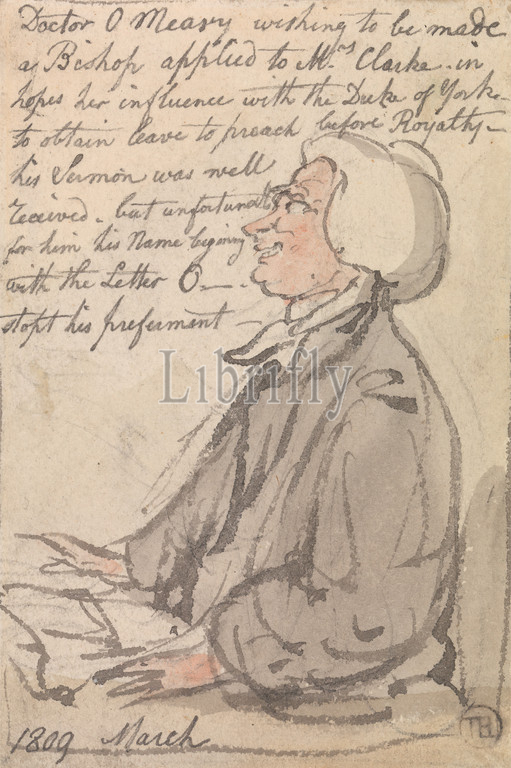 Doctor O Meary wishing to be made
a Bishop applied to Mrs Clarke in
hopes her influence with the Duke of York
to obtain leave to preach before Royalty—
his Sermon was well
received. but unfortunat
for him his Name begining
with the Letter O—.
stopt his preferment—
Librifly
1809 March
TH